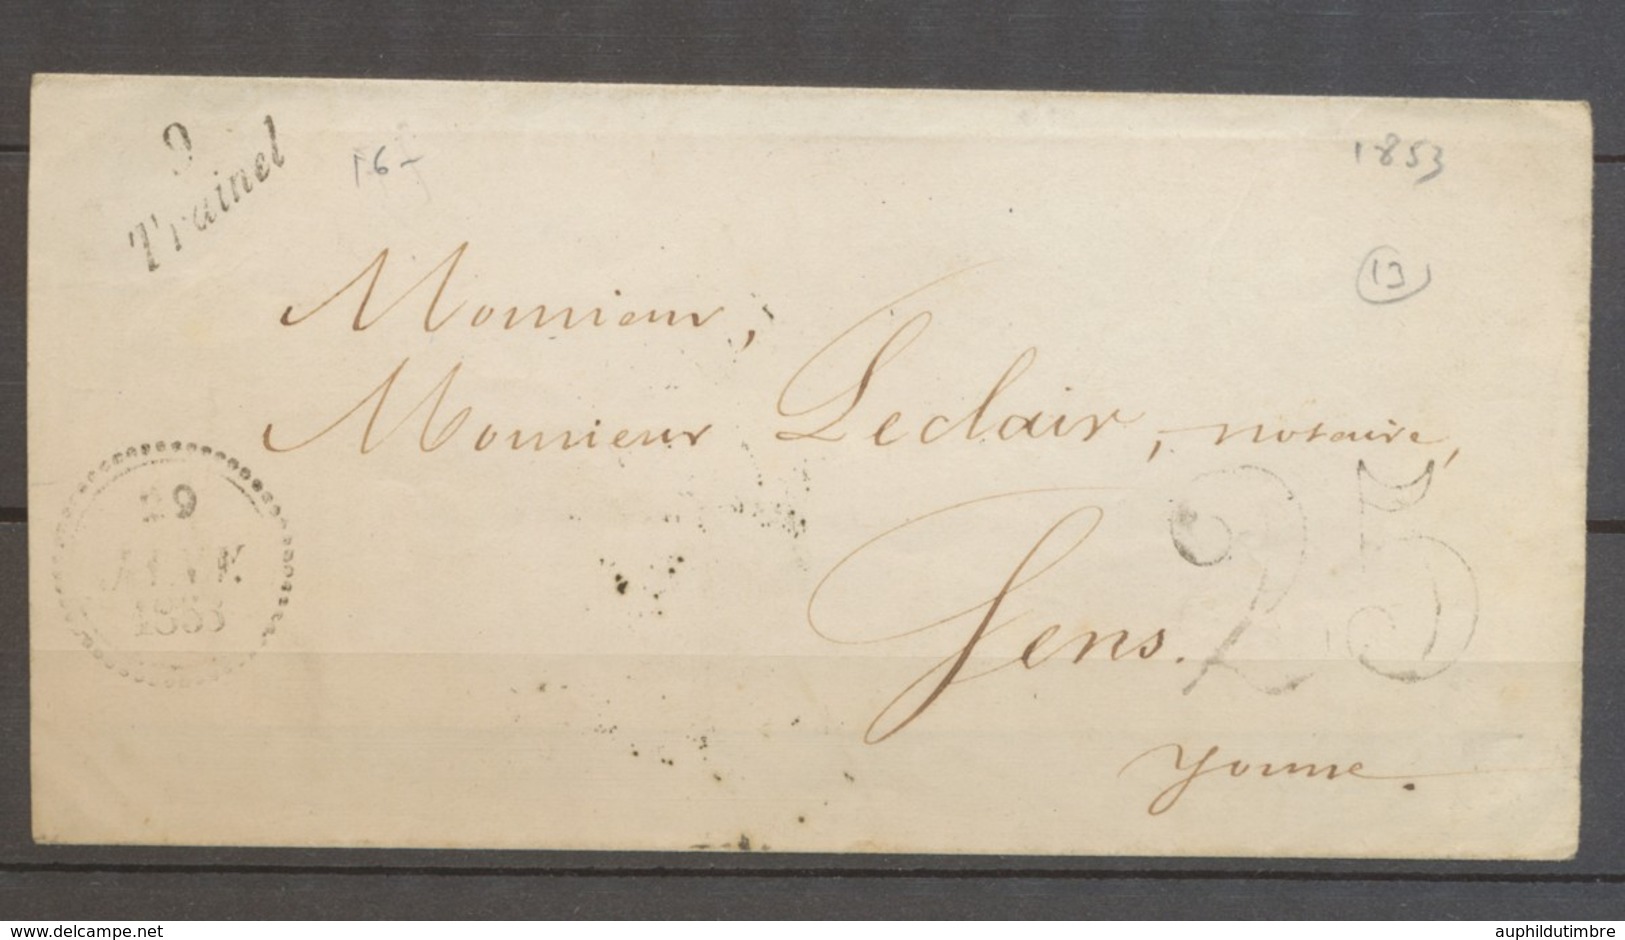 9
Trainel
16-
1853
13
Monsieur,
Monsieur Leclair, notaire,
29
JANV.
1853
25
Sens.
Yonne.
www.delcampe.net
auphildutimbre